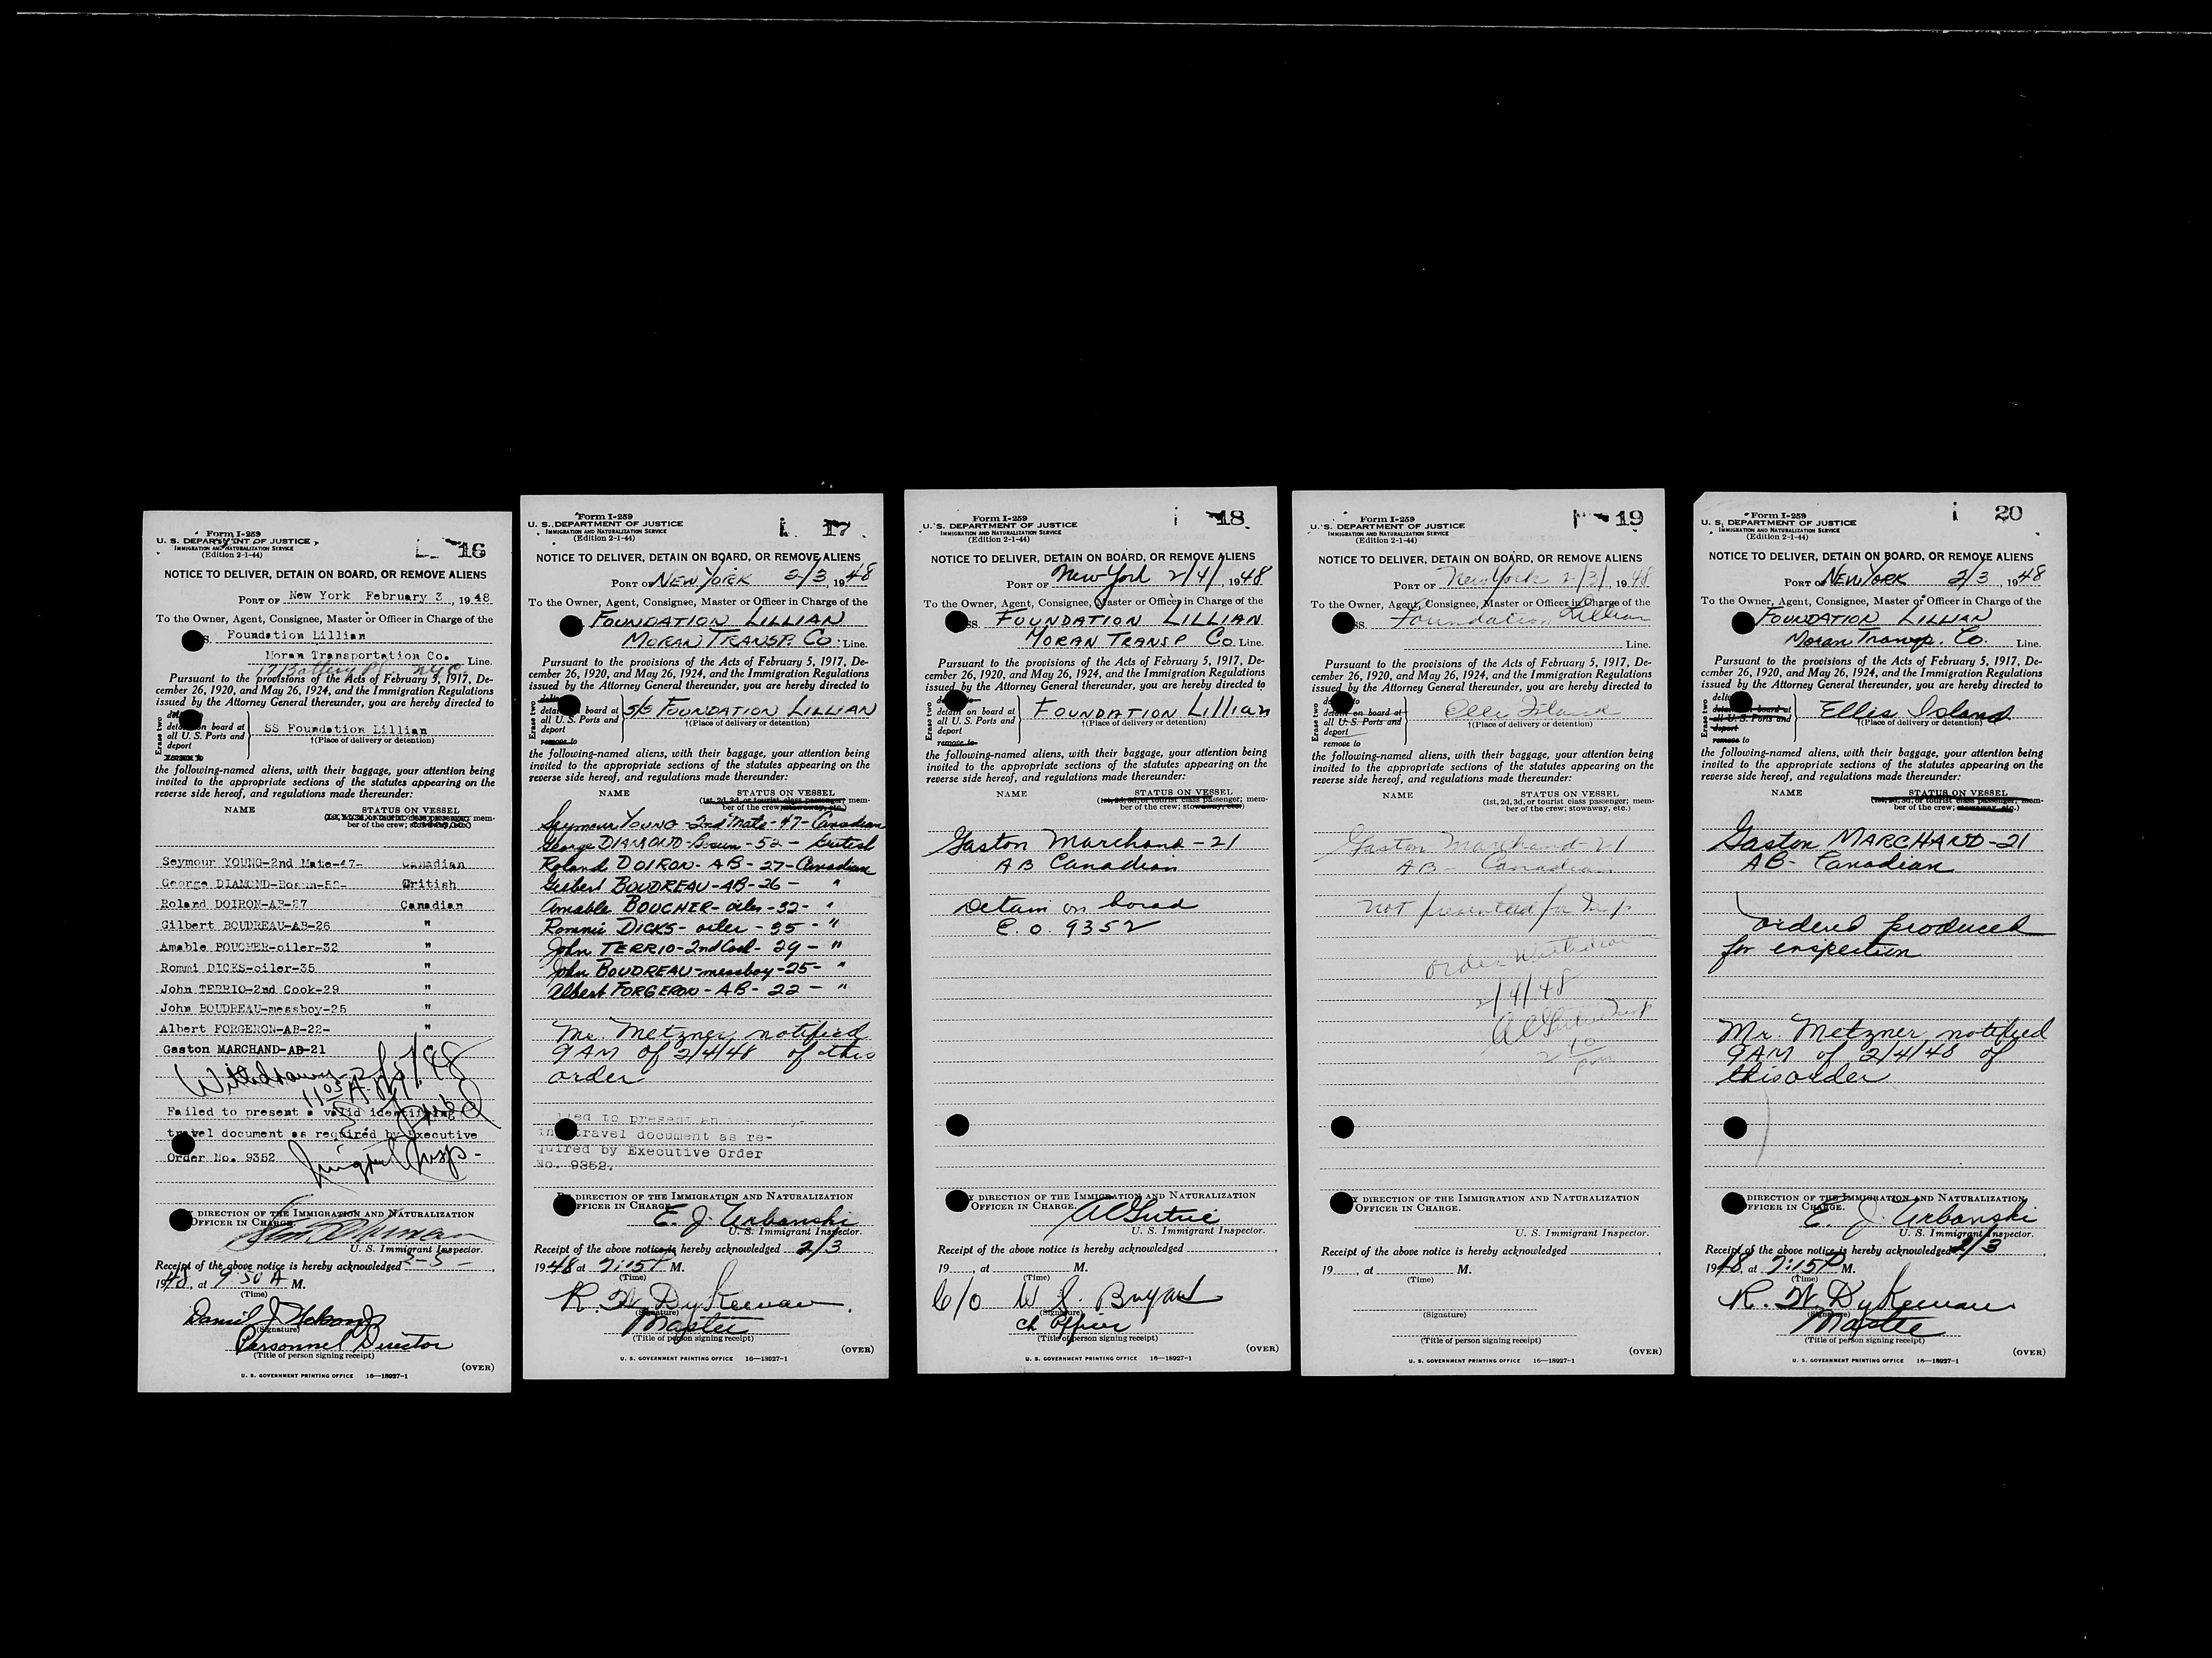 Form I-259
U. S. DEPARTMENT OF JUSTICE
IMMIGRATION AND NATURALIZATION SERVICE
(Edition 2-1-44)
16
NOTICE TO DELIVER, DETAIN ON BOARD, OR REMOVE ALIENS
PORT OF New York February 3, 1948
To the Owner, Agent, Consignee, Master or Officer in Charge of the
Foundation Lillian
Moran Transportation Co. Line.
17 Battery Pl. NYC
Pursuant to the provisions of the Acts of February 5, 1917, De-
cember 26, 1920, and May 26, 1924, and the Immigration Regulations
issued by the Attorney General thereunder, you are hereby directed to
Erase two
detain on board at
all U. S. Ports and
deport
remove to
SS Foundation Lillian
†(Place of delivery or detention)
the following-named aliens, with their baggage, your attention being
invited to the appropriate sections of the statutes appearing on the
reverse side hereof, and regulations made thereunder:
NAME STATUS ON VESSEL
mem-
ber of the crew;
Seymour YOUNG-2nd Mate-47- Canadian
George DIAMOND-Bosun-52- British
Roland DOIRON-AB-27 Canadian
Gilbert BOUDREAU-AB-26 "
Amable BOUCHER-oiler-32 "
Rommi DICKS-oiler-35 "
John TERRIO-2nd Cook-29 "
John BOUDREAU-messboy-25 "
Albert FORGERON-AB-22- "
Gaston MARCHAND-AB-21
Withdrawn 2/5/48
Failed to present a valid identifying
travel document as required by Executive
Order No. 9352
DIRECTION OF THE IMMIGRATION AND NATURALIZATION
OFFICER IN CHARGE.
U. S. Immigrant Inspector.
Receipt of the above notice is hereby acknowledged 2-5-,
1948, at 9:50 A M.
(Time)
Daniel J.
(Signature)
Personnel Director
(Title of person signing receipt)
(OVER)
U. S. GOVERNMENT PRINTING OFFICE 16—18927-1
Form I-259
U. S. DEPARTMENT OF JUSTICE
IMMIGRATION AND NATURALIZATION SERVICE
(Edition 2-1-44)
17
NOTICE TO DELIVER, DETAIN ON BOARD, OR REMOVE ALIENS
PORT OF NEW YORK 2/3, 1948
To the Owner, Agent, Consignee, Master or Officer in Charge of the
FOUNDATION LILLIAN
MORAN TRANSP. Co. Line.
Pursuant to the provisions of the Acts of February 5, 1917, De-
cember 26, 1920, and May 26, 1924, and the Immigration Regulations
issued by the Attorney General thereunder, you are hereby directed to
Erase two
detain on board at
all U. S. Ports and
deport
remove to
S/S FOUNDATION LILLIAN
†(Place of delivery or detention)
the following-named aliens, with their baggage, your attention being
invited to the appropriate sections of the statutes appearing on the
reverse side hereof, and regulations made thereunder:
NAME STATUS ON VESSEL
(1st, 2d, 3d, or tourist class passenger; mem-
ber of the crew; stowaway, etc.)
Seymour YOUNG-2nd Mate-47-Canadian
George DIAMOND-Bosun-52-British
Roland DOIRON-AB-27-Canadian
Gilbert BOUDREAU-AB-26- "
Amable BOUCHER-oiler-32- "
Rommie DICKS-oiler-35- "
John TERRIO-2nd Cook-29- "
John BOUDREAU-messboy-25- "
Albert FORGERON-AB-22- "
Mr. Metzner notified
9 AM of 2/4/48 of this
order
to present an
travel document as re-
quired by Executive Order
No. 9352.
DIRECTION OF THE IMMIGRATION AND NATURALIZATION
OFFICER IN CHARGE.
E. J. Urbanski
U. S. Immigrant Inspector.
Receipt of the above notice is hereby acknowledged 2/3
1948 at 7:15 P M.
(Time)
R. W. Dykeman
(Signature)
Master
(Title of person signing receipt)
(OVER)
U. S. GOVERNMENT PRINTING OFFICE 16—18927-1
Form I-259
U. S. DEPARTMENT OF JUSTICE
IMMIGRATION AND NATURALIZATION SERVICE
(Edition 2-1-44)
18
NOTICE TO DELIVER, DETAIN ON BOARD, OR REMOVE ALIENS
PORT OF New York 2/4/, 1948
To the Owner, Agent, Consignee, Master or Officer in Charge of the
SS. FOUNDATION LILLIAN
MORAN TRANSP Co. Line.
Pursuant to the provisions of the Acts of February 5, 1917, De-
cember 26, 1920, and May 26, 1924, and the Immigration Regulations
issued by the Attorney General thereunder, you are hereby directed to
Erase two
detain on board at
all U. S. Ports and
deport
remove to
FOUNDATION Lillian
†(Place of delivery or detention)
the following-named aliens, with their baggage, your attention being
invited to the appropriate sections of the statutes appearing on the
reverse side hereof, and regulations made thereunder:
NAME STATUS ON VESSEL
(1st, 2d, 3d, or tourist class passenger; mem-
ber of the crew; stowaway, etc.)
Gaston Marchand-21
AB Canadian
Detain on borad
E.O. 9352
DIRECTION OF THE IMMIGRATION AND NATURALIZATION
OFFICER IN CHARGE.
U. S. Immigrant Inspector.
Receipt of the above notice is hereby acknowledged
19, at M.
(Time)
W S. Bryant
(Signature)
Ch Officer
(Title of person signing receipt)
(OVER)
U. S. GOVERNMENT PRINTING OFFICE 16—18927-1
Form I-259
U. S. DEPARTMENT OF JUSTICE
IMMIGRATION AND NATURALIZATION SERVICE
(Edition 2-1-44)
19
NOTICE TO DELIVER, DETAIN ON BOARD, OR REMOVE ALIENS
PORT OF New York 2/3/, 1948
To the Owner, Agent, Consignee, Master or Officer in Charge of the
SS. Foundation Lillian
Line.
Pursuant to the provisions of the Acts of February 5, 1917, De-
cember 26, 1920, and May 26, 1924, and the Immigration Regulations
issued by the Attorney General thereunder, you are hereby directed to
Erase two
detain on board at
all U. S. Ports and
deport
remove to
Ellis Island
†(Place of delivery or detention)
the following-named aliens, with their baggage, your attention being
invited to the appropriate sections of the statutes appearing on the
reverse side hereof, and regulations made thereunder:
NAME STATUS ON VESSEL
(1st, 2d, 3d, or tourist class passenger; mem-
ber of the crew; stowaway, etc.)
Gaston Marchand-21
AB- Canadian
not presented for Insp
order Withdrawn
2/4/48
DIRECTION OF THE IMMIGRATION AND NATURALIZATION
OFFICER IN CHARGE.
U. S. Immigrant Inspector.
Receipt of the above notice is hereby acknowledged
19, at M.
(Time)
(Signature)
(Title of person signing receipt)
(OVER)
U. S. GOVERNMENT PRINTING OFFICE 16—18927-1
Form I-259
U. S. DEPARTMENT OF JUSTICE
IMMIGRATION AND NATURALIZATION SERVICE
(Edition 2-1-44)
20
NOTICE TO DELIVER, DETAIN ON BOARD, OR REMOVE ALIENS
PORT OF NEW YORK 2/3, 1948
To the Owner, Agent, Consignee, Master or Officer in Charge of the
FOUNDATION LILLIAN
Moran Transp. Co. Line.
Pursuant to the provisions of the Acts of February 5, 1917, De-
cember 26, 1920, and May 26, 1924, and the Immigration Regulations
issued by the Attorney General thereunder, you are hereby directed to
Erase two
detain on board at
all U. S. Ports and
deport
remove to
Ellis Island
†(Place of delivery or detention)
the following-named aliens, with their baggage, your attention being
invited to the appropriate sections of the statutes appearing on the
reverse side hereof, and regulations made thereunder:
NAME STATUS ON VESSEL
(1st, 2d, 3d, or tourist class passenger; mem-
ber of the crew; stowaway, etc.)
Gaston MARCHAND-21
AB- Canadian
ordered produced
for inspection
Mr. Metzner notified
9 AM of 2/4/48 of
this order
DIRECTION OF THE IMMIGRATION AND NATURALIZATION
OFFICER IN CHARGE.
E. J. Urbanski
U. S. Immigrant Inspector.
Receipt of the above notice is hereby acknowledged 2/3,
1948 at 7:15 P M.
(Time)
R. W. Dykeman
(Signature)
Master
(Title of person signing receipt)
(OVER)
U. S. GOVERNMENT PRINTING OFFICE 16—18927-1